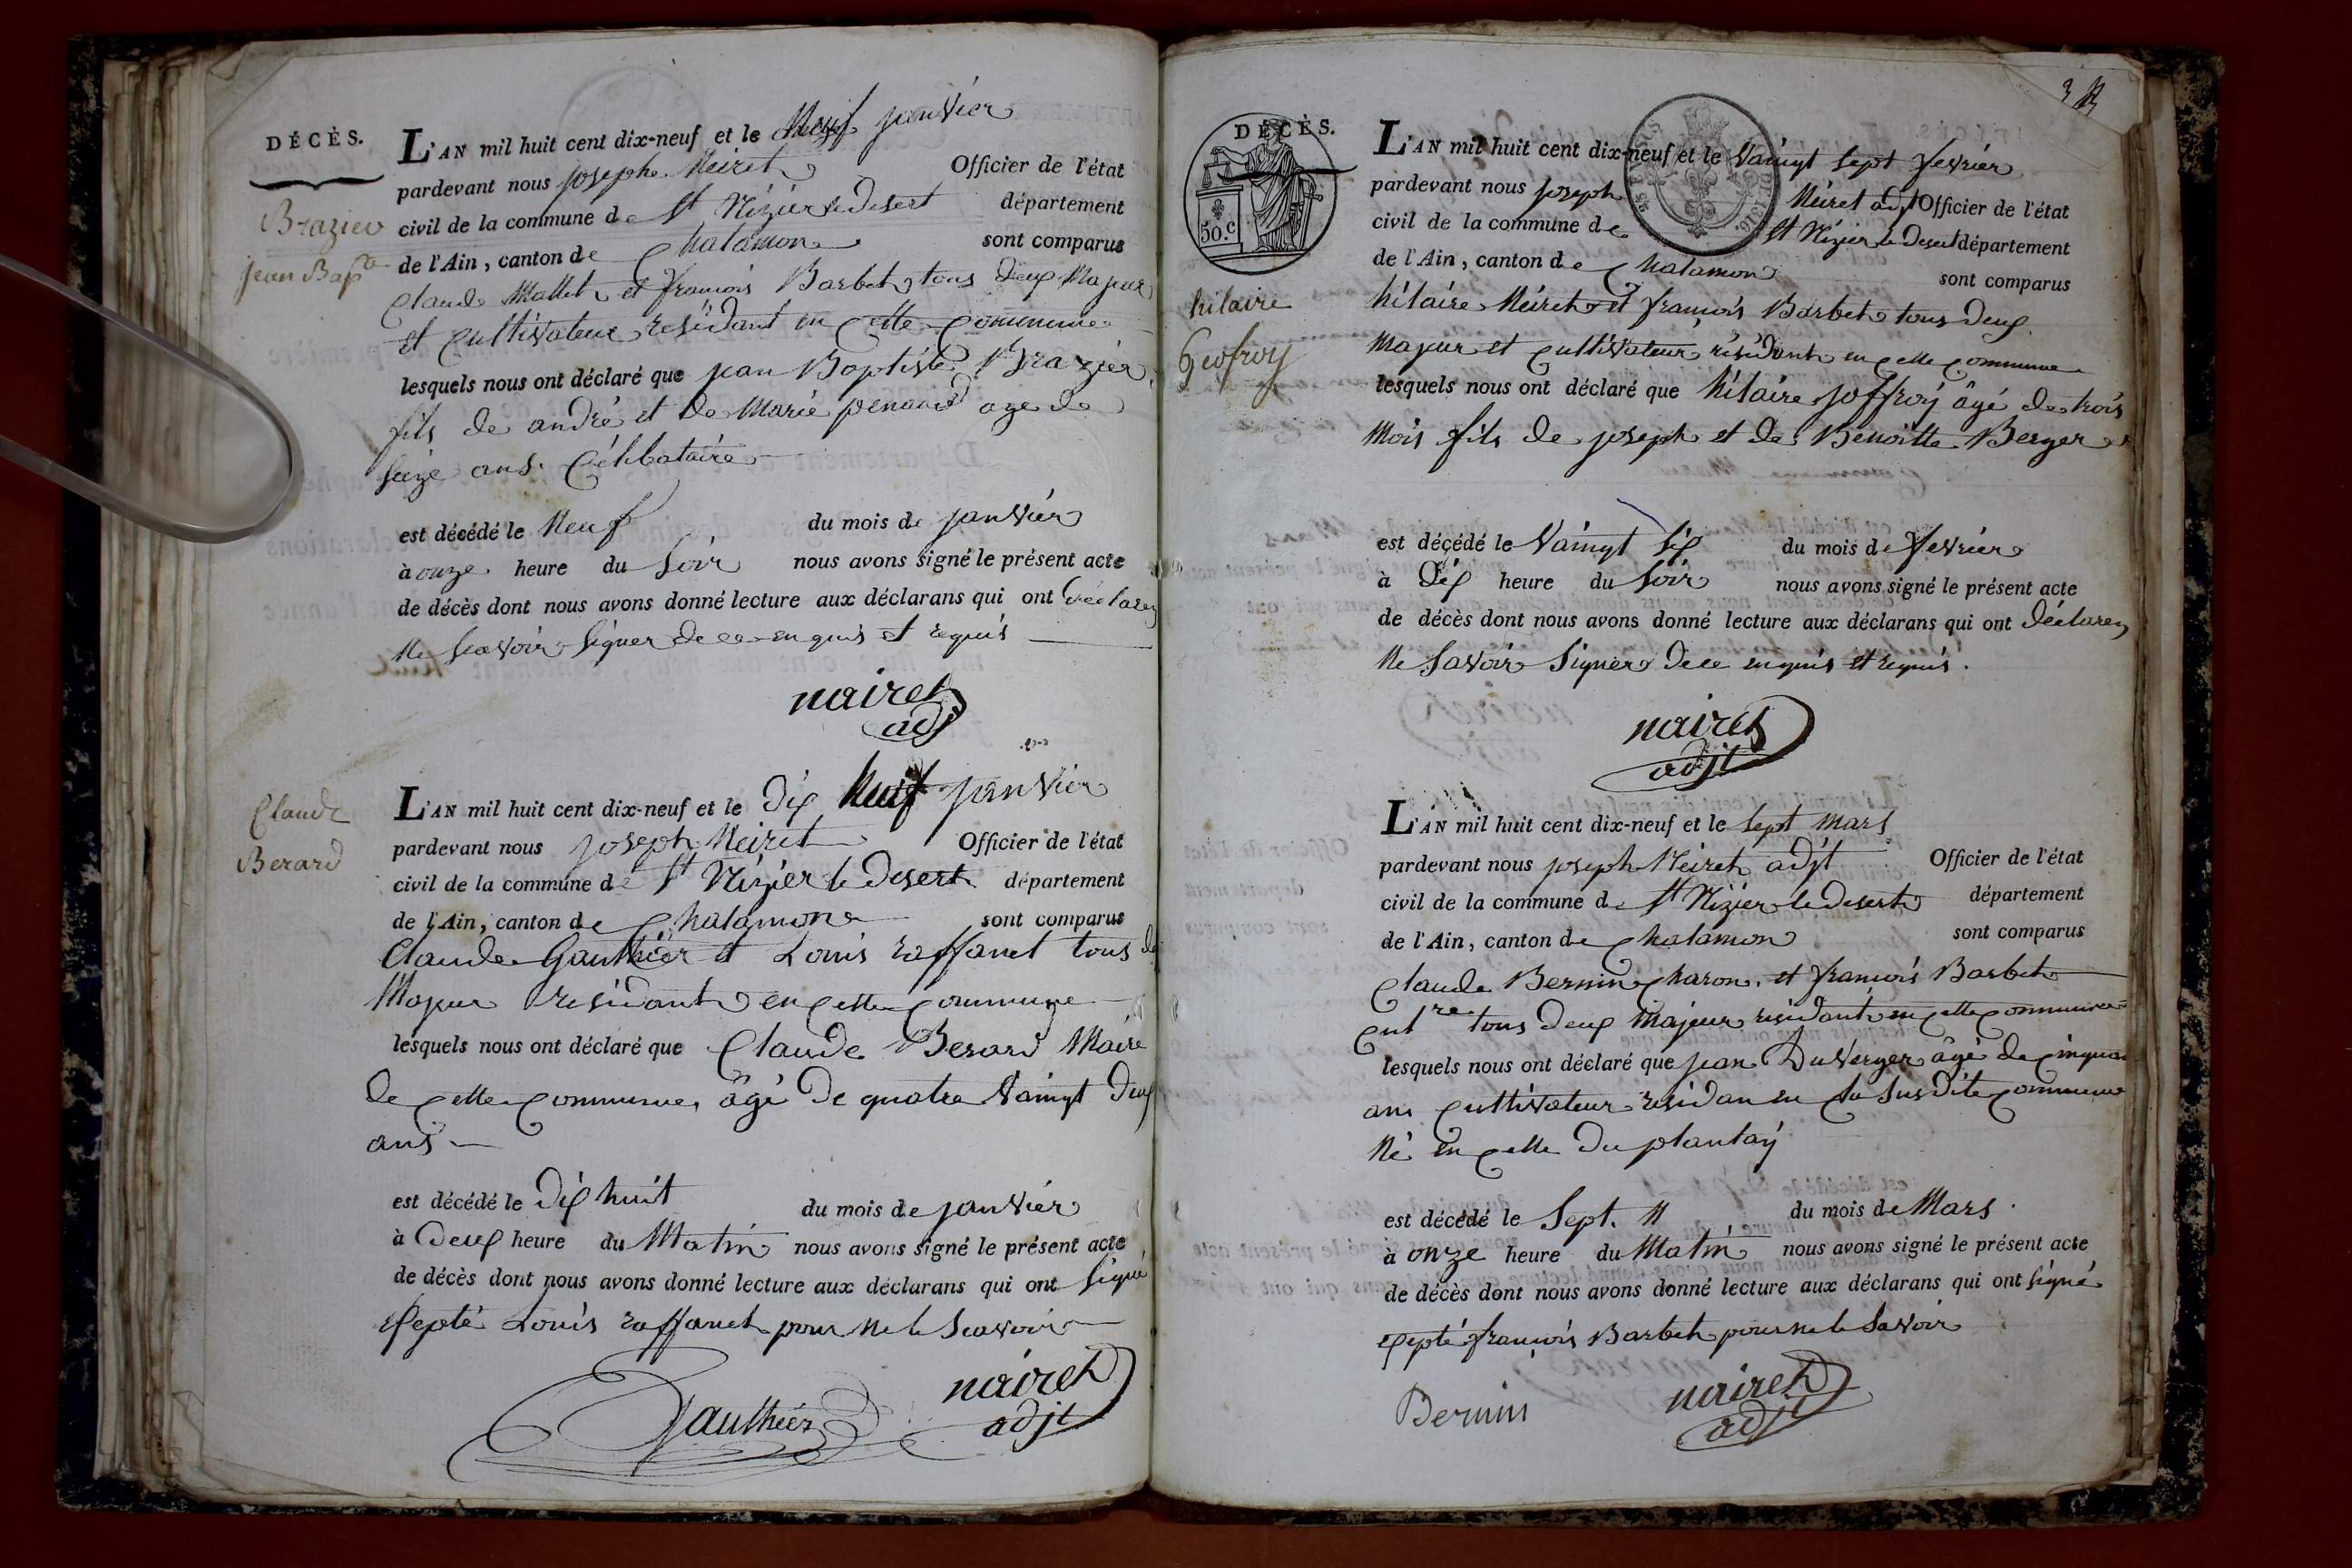 DÉCÈS.
L'AN mil huit cent dix-neuf et le Neuf janvier
pardevant nous josephe Neiret Officier de l'état
civil de la commune de St Nizier le desert département
de l'Ain, canton de Chalamon sont comparus
Claude Mallet et francois Barbet tous deux Majeur
et Cultivateur residant en Cette Commune
lesquels nous ont déclaré que jean Baptiste Brazier
fils de andré et de Marie age de
seize ans. Célibataire
est décédé le Neuf du mois de janvier
à onze heure du Soir nous avons signé le présent acte
de décès dont nous avons donné lecture aux déclarans qui ont déclarez
Ne Scavoir Signer de ce enquis et requis
nairet
adj
Brazier
jean Bapte
L'AN mil huit cent dix-neuf et le dix Neuf janvier
pardevant nous joseph Neiret Officier de l'état
civil de la commune de St Nizier le desert département
de l'Ain, canton de Chalamon sont comparus
Claude Gauthier et Louis raffanet tous de
Majeur residant en Cette Commune
lesquels nous ont déclaré que Claude Berard Maire
de Cette Commune, âgé de quatre Vaingt deux
ans
est décédé le dix huit du mois de janvier
à deux heure du Matin nous avons signé le présent acte
de décès dont nous avons donné lecture aux déclarans qui ont signé
Exepté Louis raffanet pour ne le Scavoir
Gauthier
nairet
adjt
Claude
Berard
3
DÉCÈS.
50.c
L'AN mil huit cent dix-neuf et le Vaingt Sept fevrier
pardevant nous joseph Neiret adjt Officier de l'état
civil de la commune de St Nizier le Desert département
de l'Ain, canton de Chalamon sont comparus
hilaire Neiret et françois Barbet tous deux
Majeur et Cultivateur résidant en Cette Commune
lesquels nous ont déclaré que hilaire joffroy âgé de trois
Mois fils de joseph et de Benoitte Berger
est décédé le Vaingt Six du mois de fevrier
à dix heure du Soir nous avons signé le présent acte
de décès dont nous avons donné lecture aux déclarans qui ont déclarez
Ne Savoir Signer de ce enquis et requis.
nairet
adjt
hilaire
Geofroy
L'AN mil huit cent dix-neuf et le Sept Mars
pardevant nous joseph Neiret adjt Officier de l'état
civil de la commune de St Nizier le desert département
de l'Ain, canton de Chalamon sont comparus
Claude Bernin Charon, et françois Barbet
Cultre tous deux Majeur residant en Cette Commune
lesquels nous ont déclaré que jean Duverger âgé de Cinquan
ans Cultivateur residan en la Susdite Commune
Né en Celle du plantay
est décédé le Sept. du mois de Mars.
à onze heure du Matin nous avons signé le présent acte
de décès dont nous avons donné lecture aux déclarans qui ont signé
Exepté françois Barbet pour ne le Savoir
Bernin
nairet
adjt